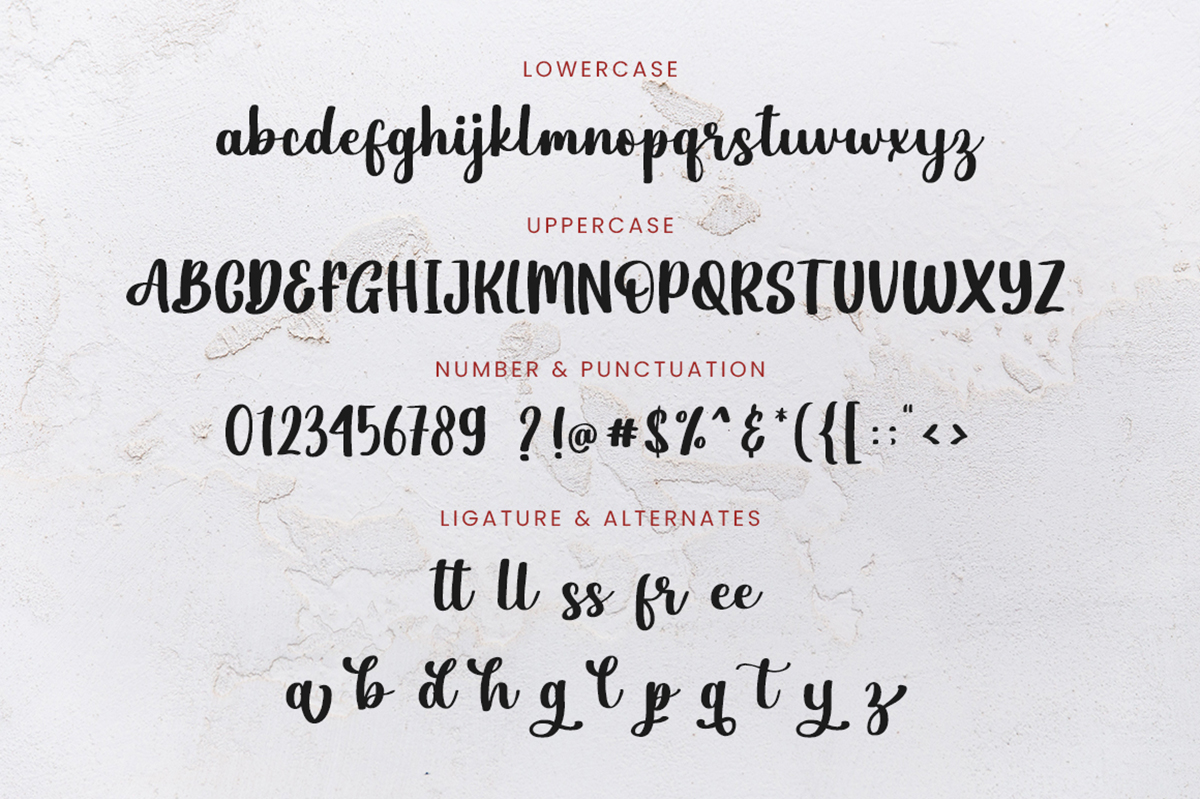 LOWERCASE
abcdefghijklmnopqrstuvwxyz
UPPERCASE
ABCDEFGHIJKLMNOPQRSTUVWXYZ
NUMBER & PUNCTUATION
0123456789 ?!@#$%^&*({[:;"<>
LIGATURE & ALTERNATES
tt ll ss fr ee
a b d h g l p q t y z